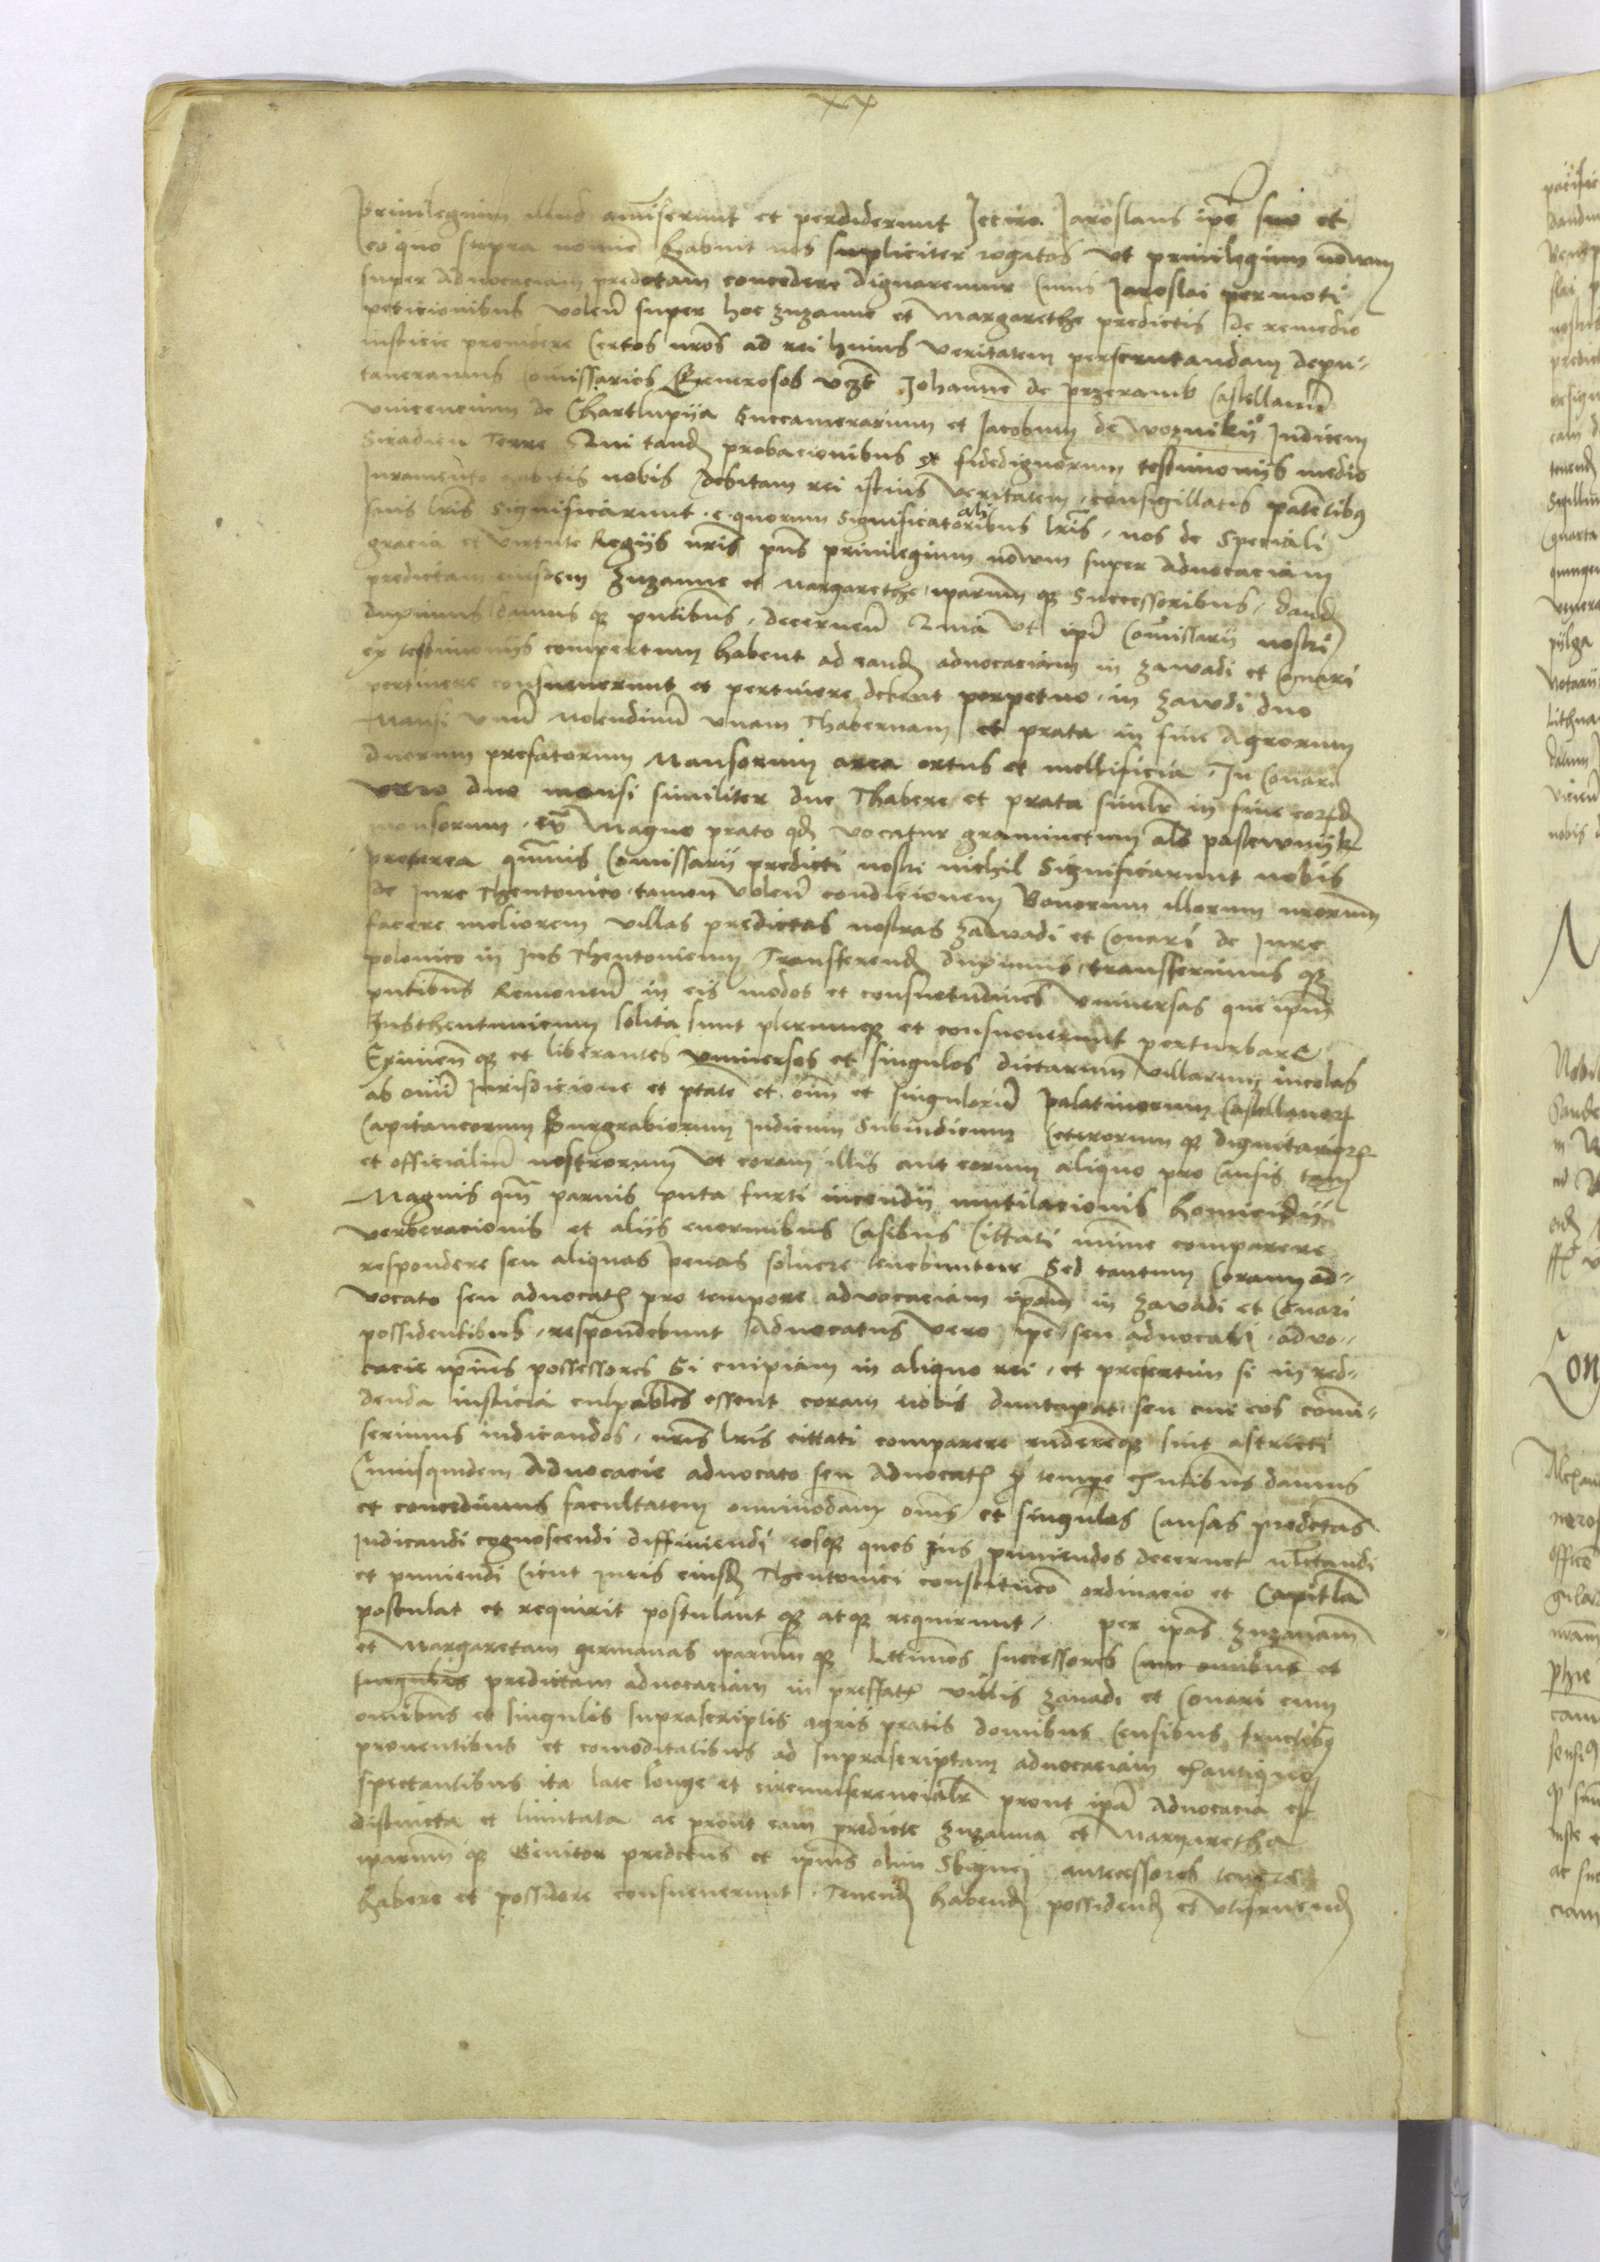 xx
Privilegium illud amiserunt et perdiderunt Jetrro. Jaroslaus ipē suo et
eo quo supra nomīe habuit nos supliciter rogatos ut privilegium novum
super Advocaciam predctam concedere dignaremur Cuius Jaroslai permoti
peticionibus volen̄ super hoc Zuzanne et Margarethe predictis de remedio
iusticie providere Certos nr̄os ad rei huius veritatem perscrutandam depu-
taveramus Comissarios Generosos vcz̄t Johannē de przeramb Castellanū
vincencium de Chartlupya Succamerarium et Jacobum de Wozniky Judicem
Siradien̄ Terre Qui tand̄ probacionibus et fidedignorum testimonys medio
Juramento habitis nobis debitam rei istius veritatem, consigillatis patētibq
suis lr̄is significarunt. e quorum significatoribus alr lr̄is, nos de speciali
gracia et virtute Regys nr̄is pn̄s privilegium novum super Advocaciam
predictam eiusdem Zuzanne et Margarethe, iparum q Successoribus, dand̄
duximus damus q pn̄tibus, decernen̄ Quia ut ipī Comissarii nostri
ex testimonys compertum habent ad eand̄ advocaciam in Zawadi et Conari
pertinere consueverunt et pertinere debent perpetuo, in Zawdi duo
Mansi unū Molendinū unam Thabernam et prata in fine Agrorum
duorum prefatorum Mansorum area ortus et mellificia. In Conari
vero duo mansi similiter due Thaberne et prata siml̄r in fine eorūd̄
mansorum, cū Magno prato qd̄ vocatur graminetum als pastewnyk
preterea quāvis Comissarii predicti nostri nichil significarunt nobis
de Jure Theutonico, tamen volen̄ condicionem Bonorum illorum nr̄orum
facere meliorem villas predictas nostras Zawadi et Conari de Jure
polonico in Jus Theutonicum Transferend̄ duximus, transferimus q
pn̄tibus Removen̄ in eis modos et consuetudines universas que ipm̄
Justheutunicum solita sunt plerumq et consueverunt perturbare
Eximen̄ q et liberantes universos et singulos dictarum villarum incolas
ab omī Jurisdicione et ptatē et oīm et singulorū palatinorum Castellanor
Capitaneorum Burgrabiorum Judicum Subiudicum Ceterorum q dignitarior
et officialiū nostrorum Ut coram illis aut eorum aliquo pro causis tam
Magnis qm̄ parvis puta furti incendii mutilacionis homicidii
verberacionis et aliis enormibus Casibus Cittati minime comparere
respondere seu aliquas penas solvere tenebuntur Sed tantum Coram ad-
vocato seu advocatis pro tempore advocaciam ipam̄ in Zawadi et Conari
possidentibus, respondebunt Advocatus vero ipē seu advocati, advo-
cacie ipius possessores Si cuipiam in aliquo rei, et presertim si in red-
denda iusticia culpables essent coram nobis dumtaxat seu cui eos comi-
serimus iudicandos, nr̄is lr̄is cittati comparere rn̄dereq sint astricti
Cuiusquidem Advocacie advocato seu Advocatis p̄ tempore exn̄tibus damus
et concedimus facultatem omnimodam om̄s et singulas Causas predctas
Judicandi cognoscendi diffiniendi eosq quos Jus puniendos decernet ulctandi
et puniendi Sicut Juris eiusd̄ Theutonici constitucō ordinacio et Capitl̄a
postulat et requirit postulant q atq requirunt. per ipas Zuzannam
et Margaretam germanas iparum q l̄ttimos successores cum omnibus et
singulis predictam advocaciam in preffatis villis Zavadi et Conari cum
omībus et singulis suprascriptis agris pratis domibus Censibus fructibq
proventibus et comoditatibus ad suprascriptam advocaciam exantiquo
spectantibus ita late longe et circumferencialr̄ prout ipa Advocacia est
distincta et limitata ac prout eam predicte Zuzanna et Margaretha
iparum q Genitor predctus et ipius olim Sbignei antecessores tenere
habere et possidere consueverunt, Tenend̄ habend̄ possidend̄ et utifruend̄